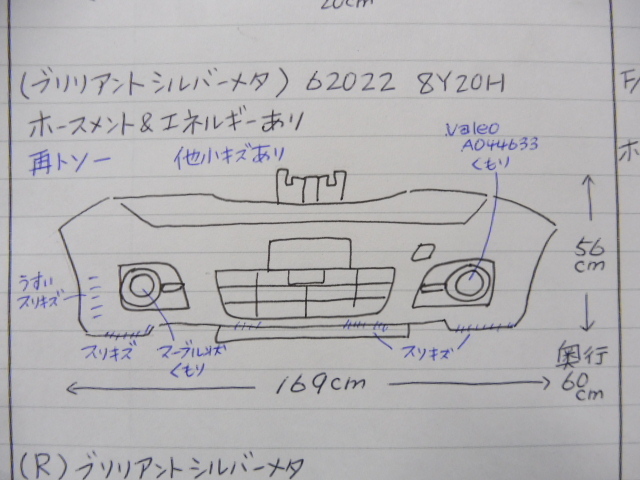 20cm
(ブリリアントシルバーメタ) 62022 8Y20H
ホースメント&エネルギーあり
再トソー 他小キズあり
Valeo
A044633
くもり
56
cm
うすい
スリキズ
スリキズ
くもり
スリキズ
169cm
奥行
60
cm
(R) ブリリアントシルバーメタ
F/
ホ